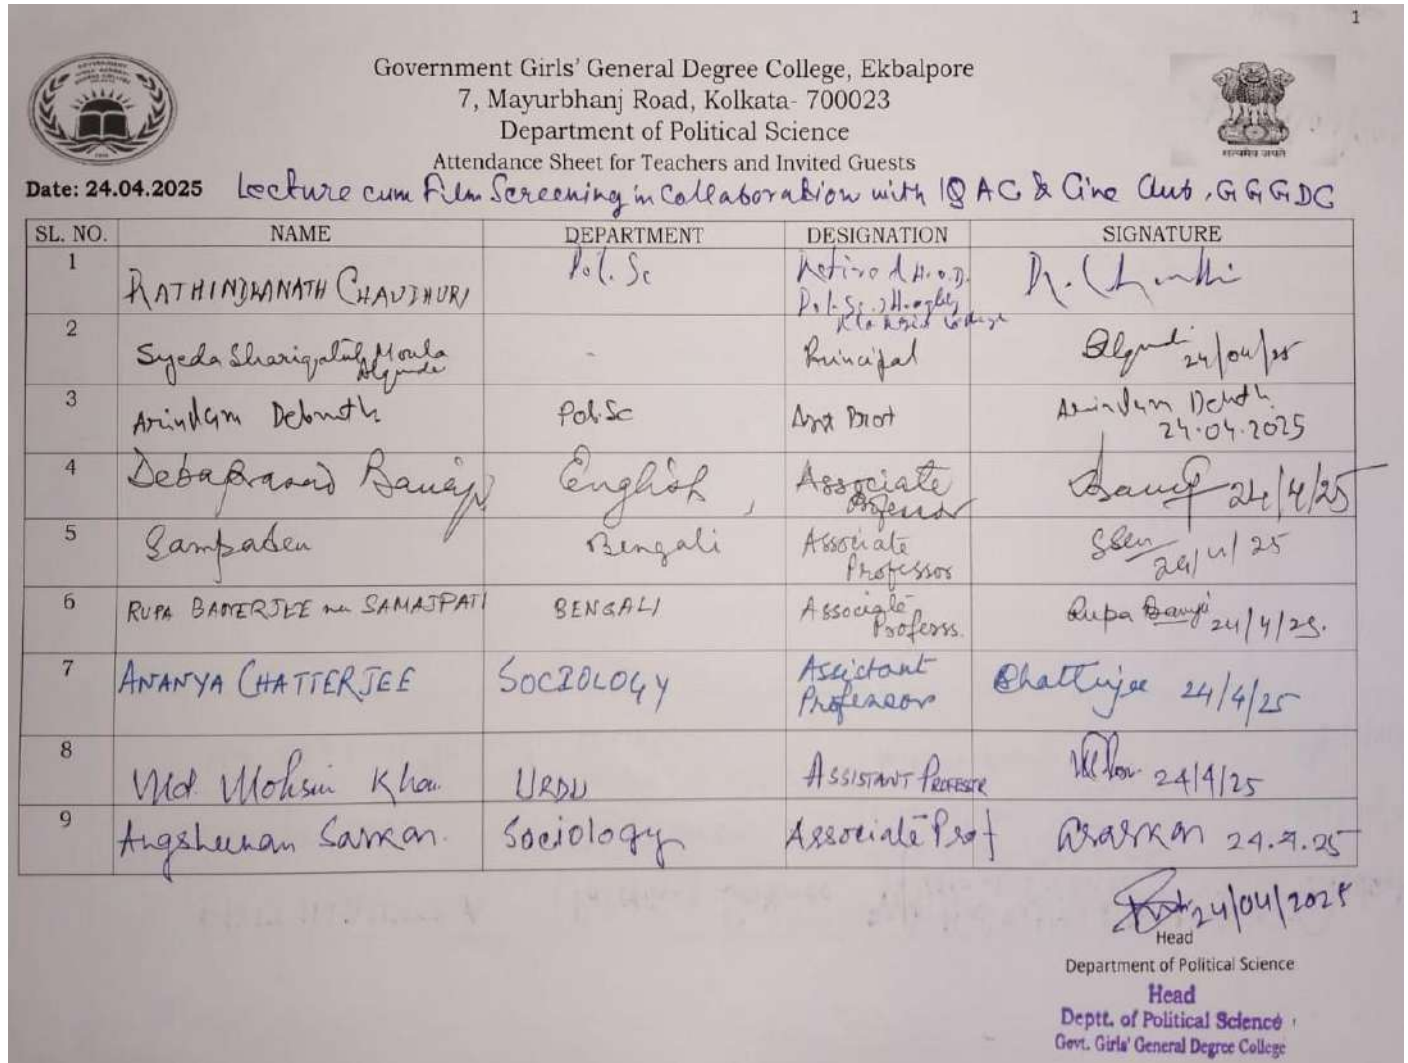 1
Government Girls' General Degree College, Ekbalpore
7, Mayurbhanj Road, Kolkata- 700023
Department of Political Science
Attendance Sheet for Teachers and Invited Guests
सत्यमेव जयते
Date: 24.04.2025 Lecture cum Film Screening in Collaboration with IQAC & Cine Club, GGGDC
SL. NO. NAME DEPARTMENT DESIGNATION SIGNATURE
1 RATHINDRANATH CHAUDHURI Pol. Sc Retired H.O.D. Pol. Sc., Hooghly College
2 Syeda Shariqatul Moula Alquadri - Principal 24/04/25
3 Arindam Debnath Pol.Sc Asst Prof Arindam Debnath 24.04.2025
4 Debaprasad Banerjee English, Associate Professor 24/4/25
5 Sampa Sen Bengali Associate Professor SSen 24/4/25
6 RUPA BANERJEE nee SAMAJPATI BENGALI Associate Profess. Rupa Banerjee 24/4/25.
7 ANANYA CHATTERJEE SOCIOLOGY Assistant Professor Chatterjee 24/4/25
8 Md. Mohsin Khan URDU ASSISTANT PROFESSOR 24/4/25
9 Angshuman Sarkar. Sociology Associate Prof Asarkar 24.4.25
24/04/2025
Head
Department of Political Science
Head
Deptt. of Political Science
Govt. Girls' General Degree College